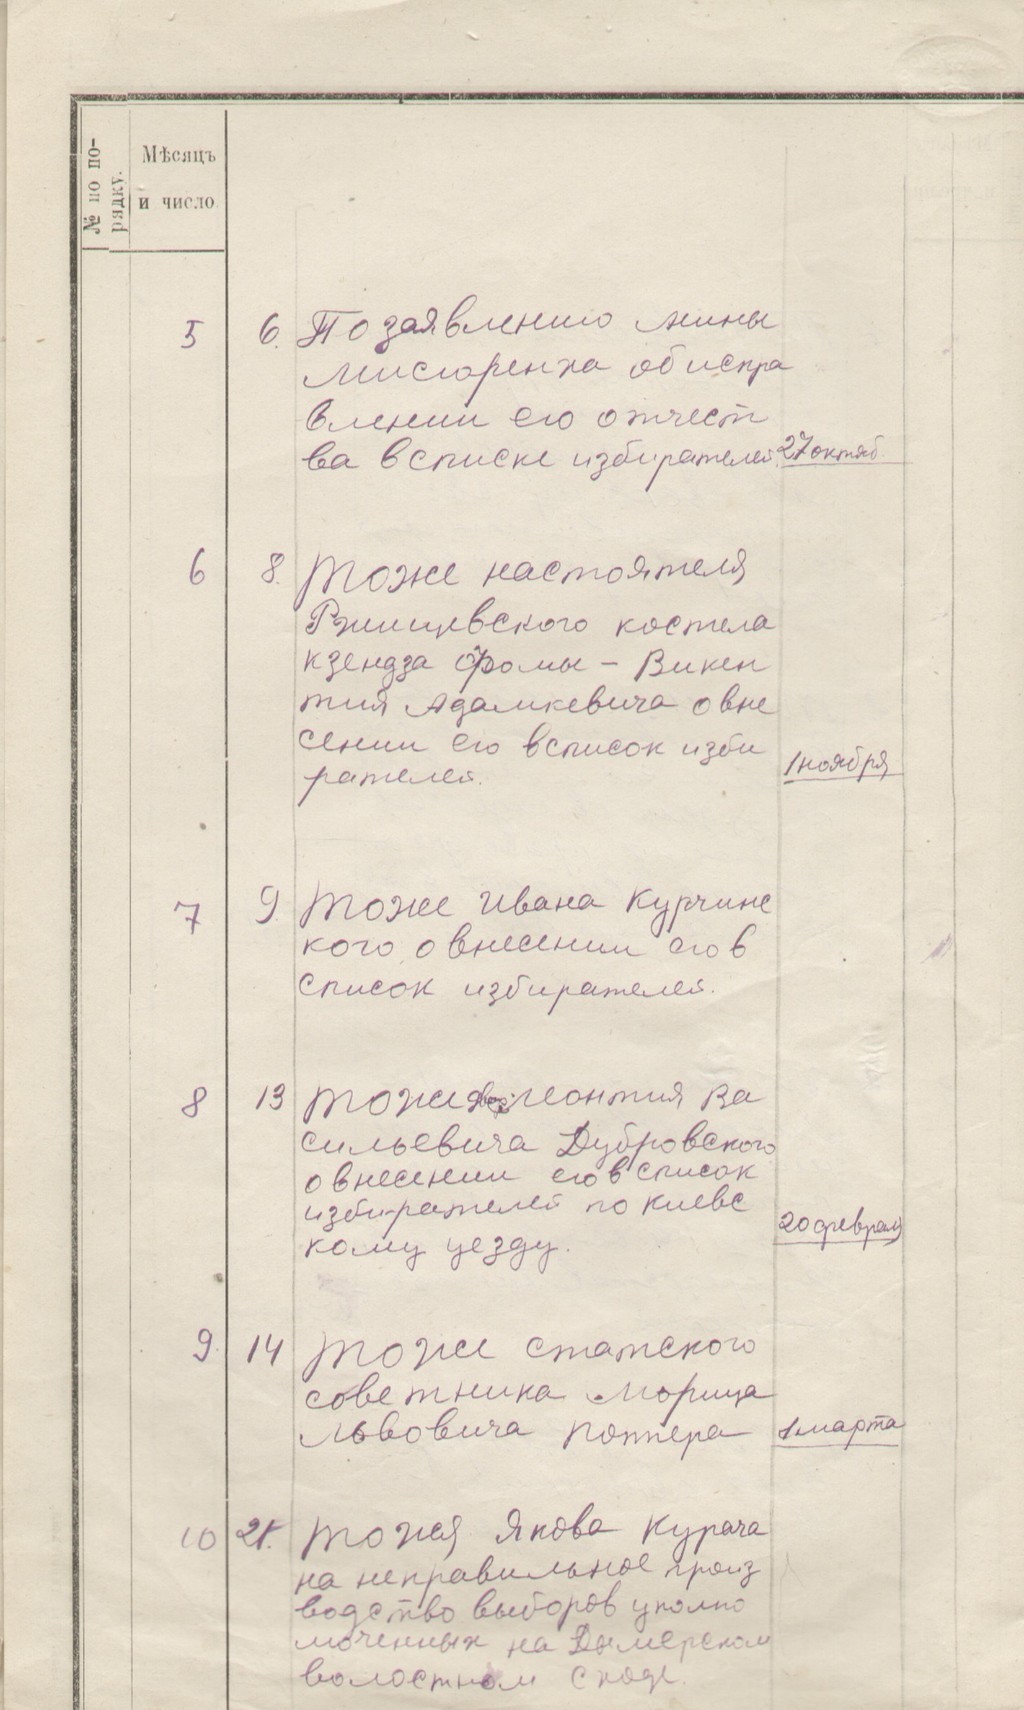 № по по-
рядку.
Мѣсяцъ
и число
5 6. По заявлению Мины
Мисюренка об испра
влении его отчест
ва в списке избирателей. 27 октяб.
6 8. Тоже настоятеля
Ржищевского костела
кзендза Фомы - Викен
тия Адамкевича о вне
сении его в список изби
рателей. 1 ноября
7 9. Тоже Ивана Курчинс
кого о внесении его в
список избирателей.
8 13 Тоже Леонтия Ва
сильевича Дубровского
о внесении его в список
избирателей по Киевс
кому уезду. 20 февраля
9. 14 Тоже статского
советника Морица
Львовича 1 марта
10 21. Тоже Якова Курача
на неправильное произ
водство выборов уполно
моченных на Дымерском
волостном сходе.